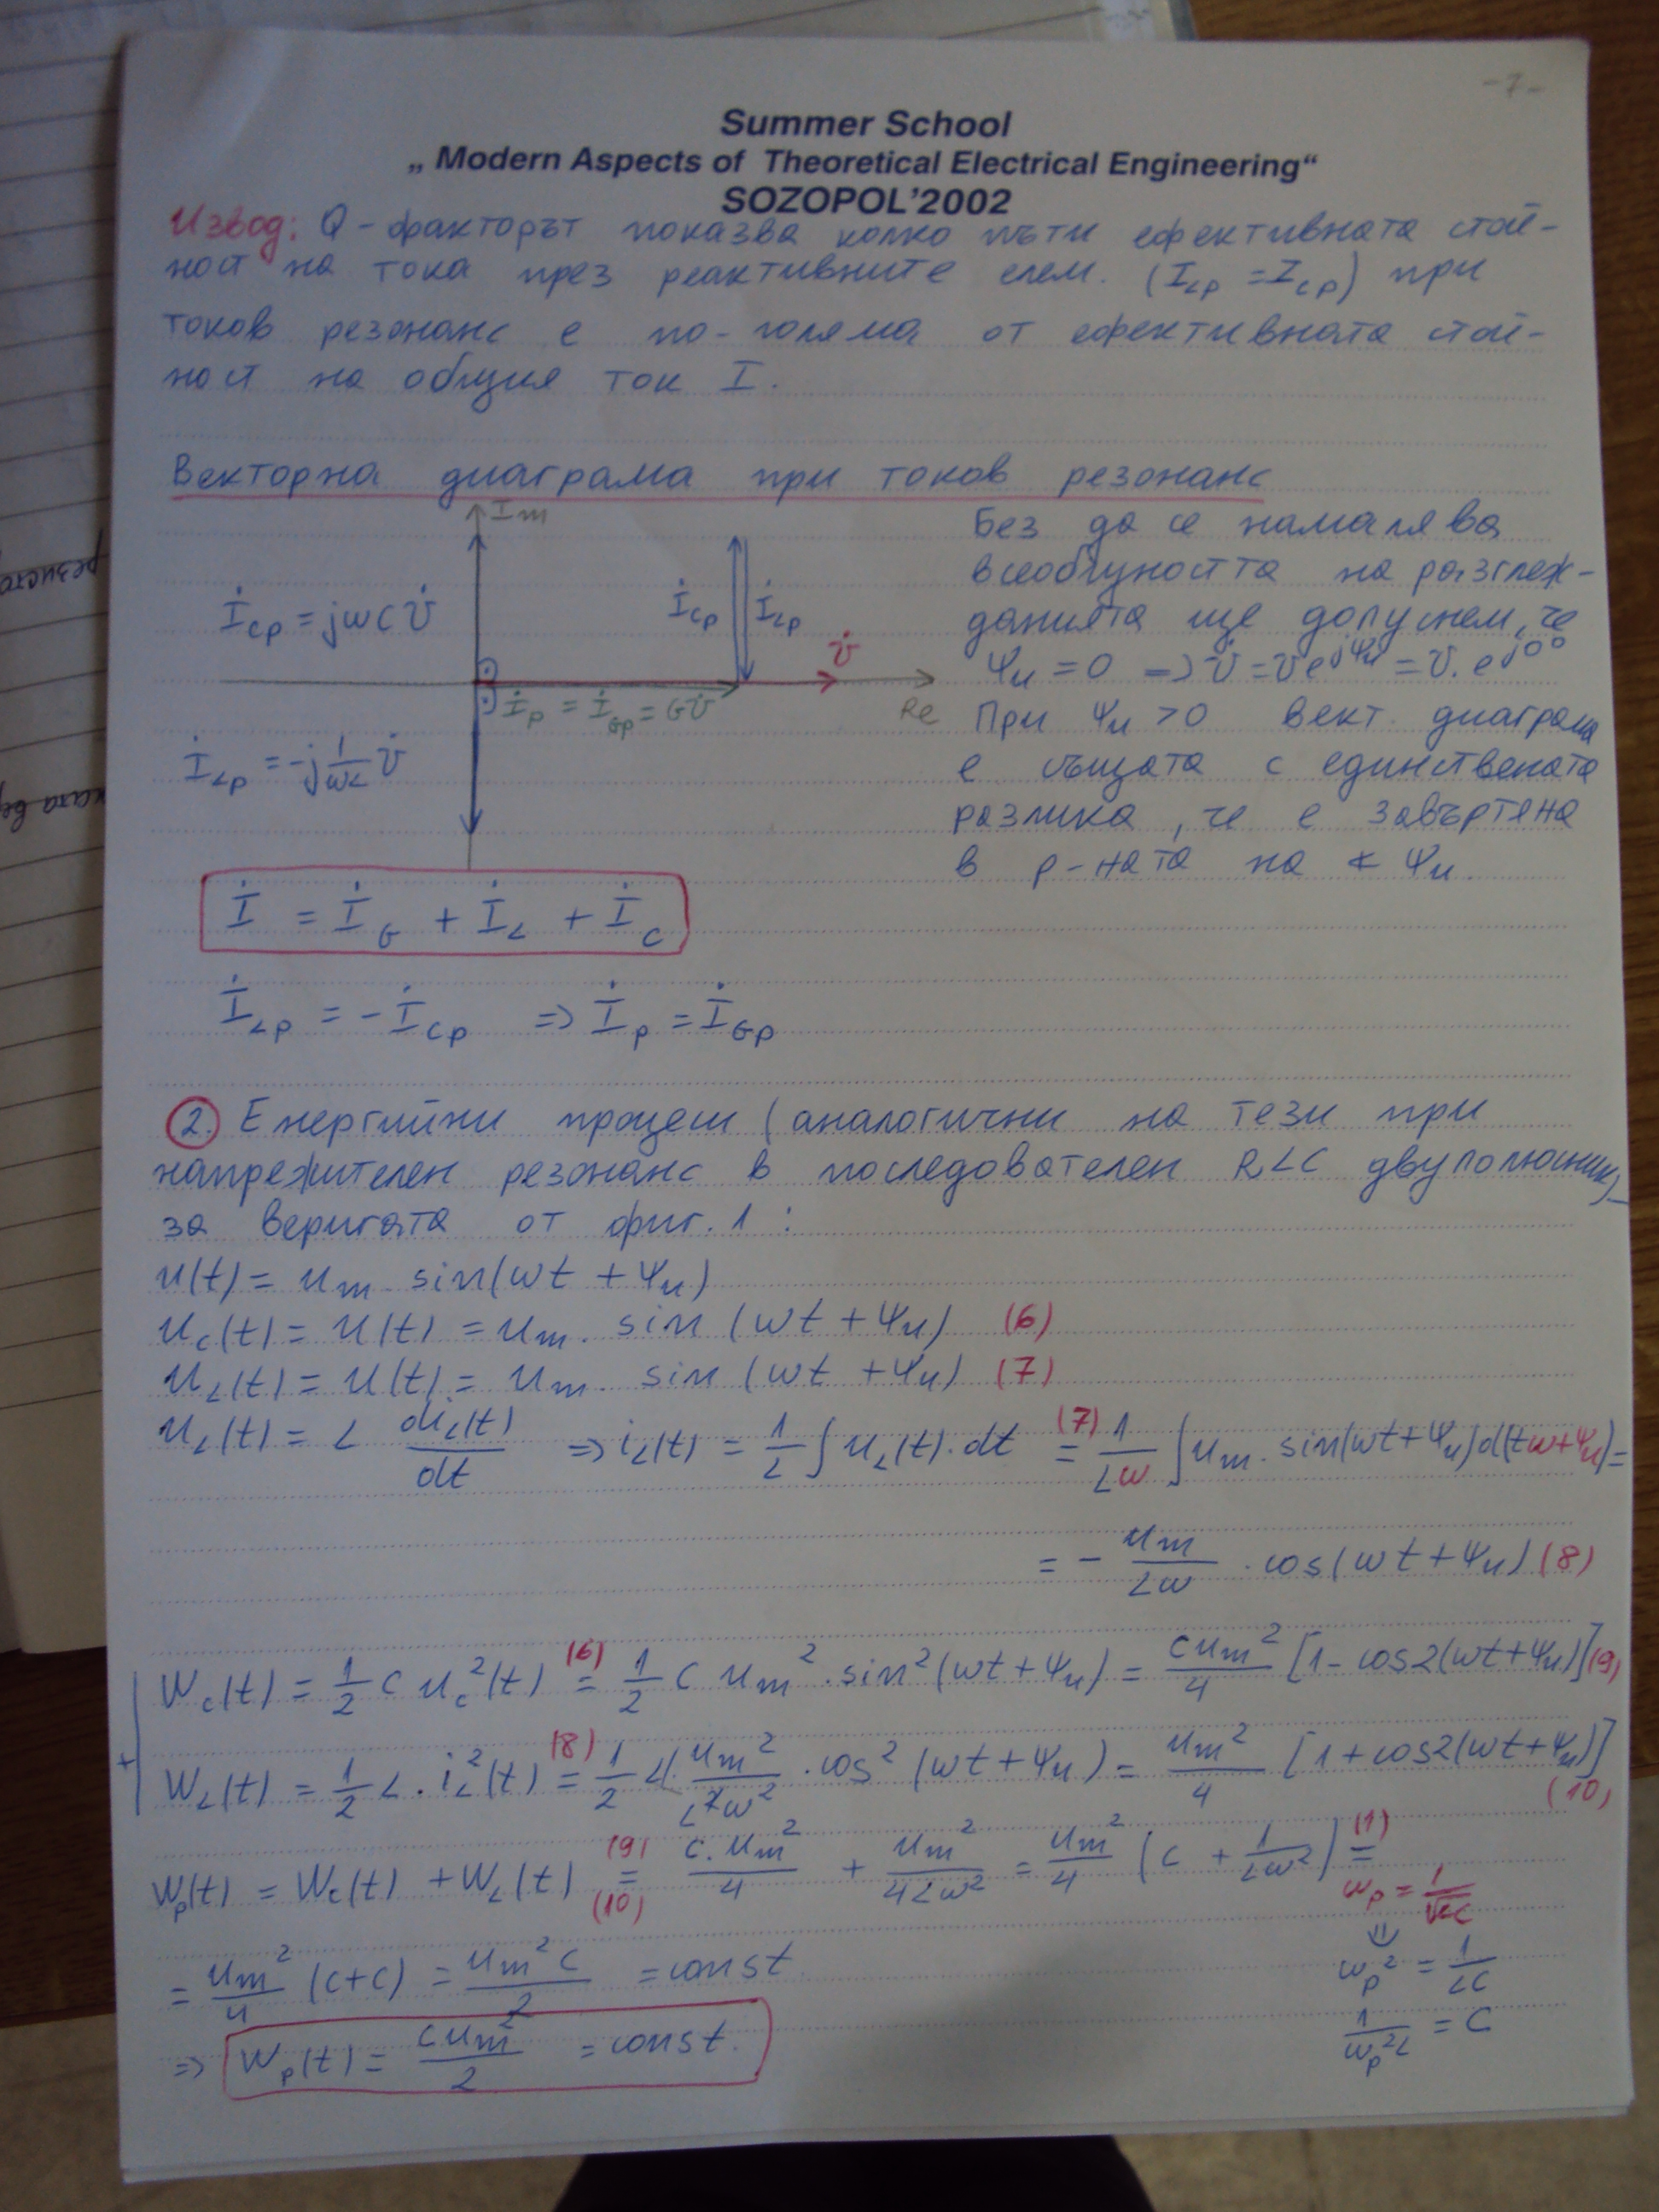 -7-
Summer School
„ Modern Aspects of Theoretical Electrical Engineering“
SOZOPOL'2002
Извод: Q-факторът показва колко пъти ефективната стой-
ност на тока през реактивните елем. (I_LP = I_CP) при
токов резонанс е по-голяма от ефективната стой-
ност на общия ток I.
Векторна диаграма при токов резонанс
Im
İ_CP = jωC U̇
İ_CP
İ_LP
U̇
İ_P = İ_GP = G U̇
Re
İ_LP = -j 1/ωL U̇
Без да се намалява
всеобщността на разглеж-
данията ще допуснем, че
Ψu = 0 => U̇ = U e^jΨu = U. e^j0°
При Ψu > 0 вект. диаграма
е същата с единствената
разлика, че е завъртена
в р-ната на ∢ Ψu.
İ = İ_G + İ_L + İ_C
İ_LP = -İ_CP => İ_P = İ_GP
2. Енергийни процеси (аналогични на тези при
напрежителен резонанс в последователен RLC двуполюсник)_
за веригата от фиг. 1 :
u(t) = um. sin(ωt + Ψu)
uc(t) = u(t) = um. sin (ωt + Ψu) (6)
uL(t) = u(t) = um. sin (ωt + Ψu) (7)
uL(t) = L diL(t)/dt => iL(t) = 1/L ∫ uL(t).dt (7)= 1/Lω ∫ um. sin(ωt + Ψu) d(tω + Ψu) =
= - um/Lω . cos(ωt + Ψu) (8)
Wc(t) = 1/2 C uc²(t) (6)= 1/2 C um² . sin²(ωt + Ψu) = C um²/4 [1 - cos2(ωt + Ψu)] (9)
+
WL(t) = 1/2 L . iL²(t) (8)= 1/2 L. um²/L²ω² . cos² (ωt + Ψu) = um²/4 [1 + cos2(ωt + Ψu)]
(10)
Wp(t) = Wc(t) + WL(t) (9)=(10) C. um²/4 + um²/4Lω² = um²/4 (C + 1/Lω²) (1)=
ωp = 1/√LC
= um²/4 (C+C) = um² C/2 = const.
ωp² = 1/LC
1/ωp²L = C
=> Wp(t) = C um²/2 = const.